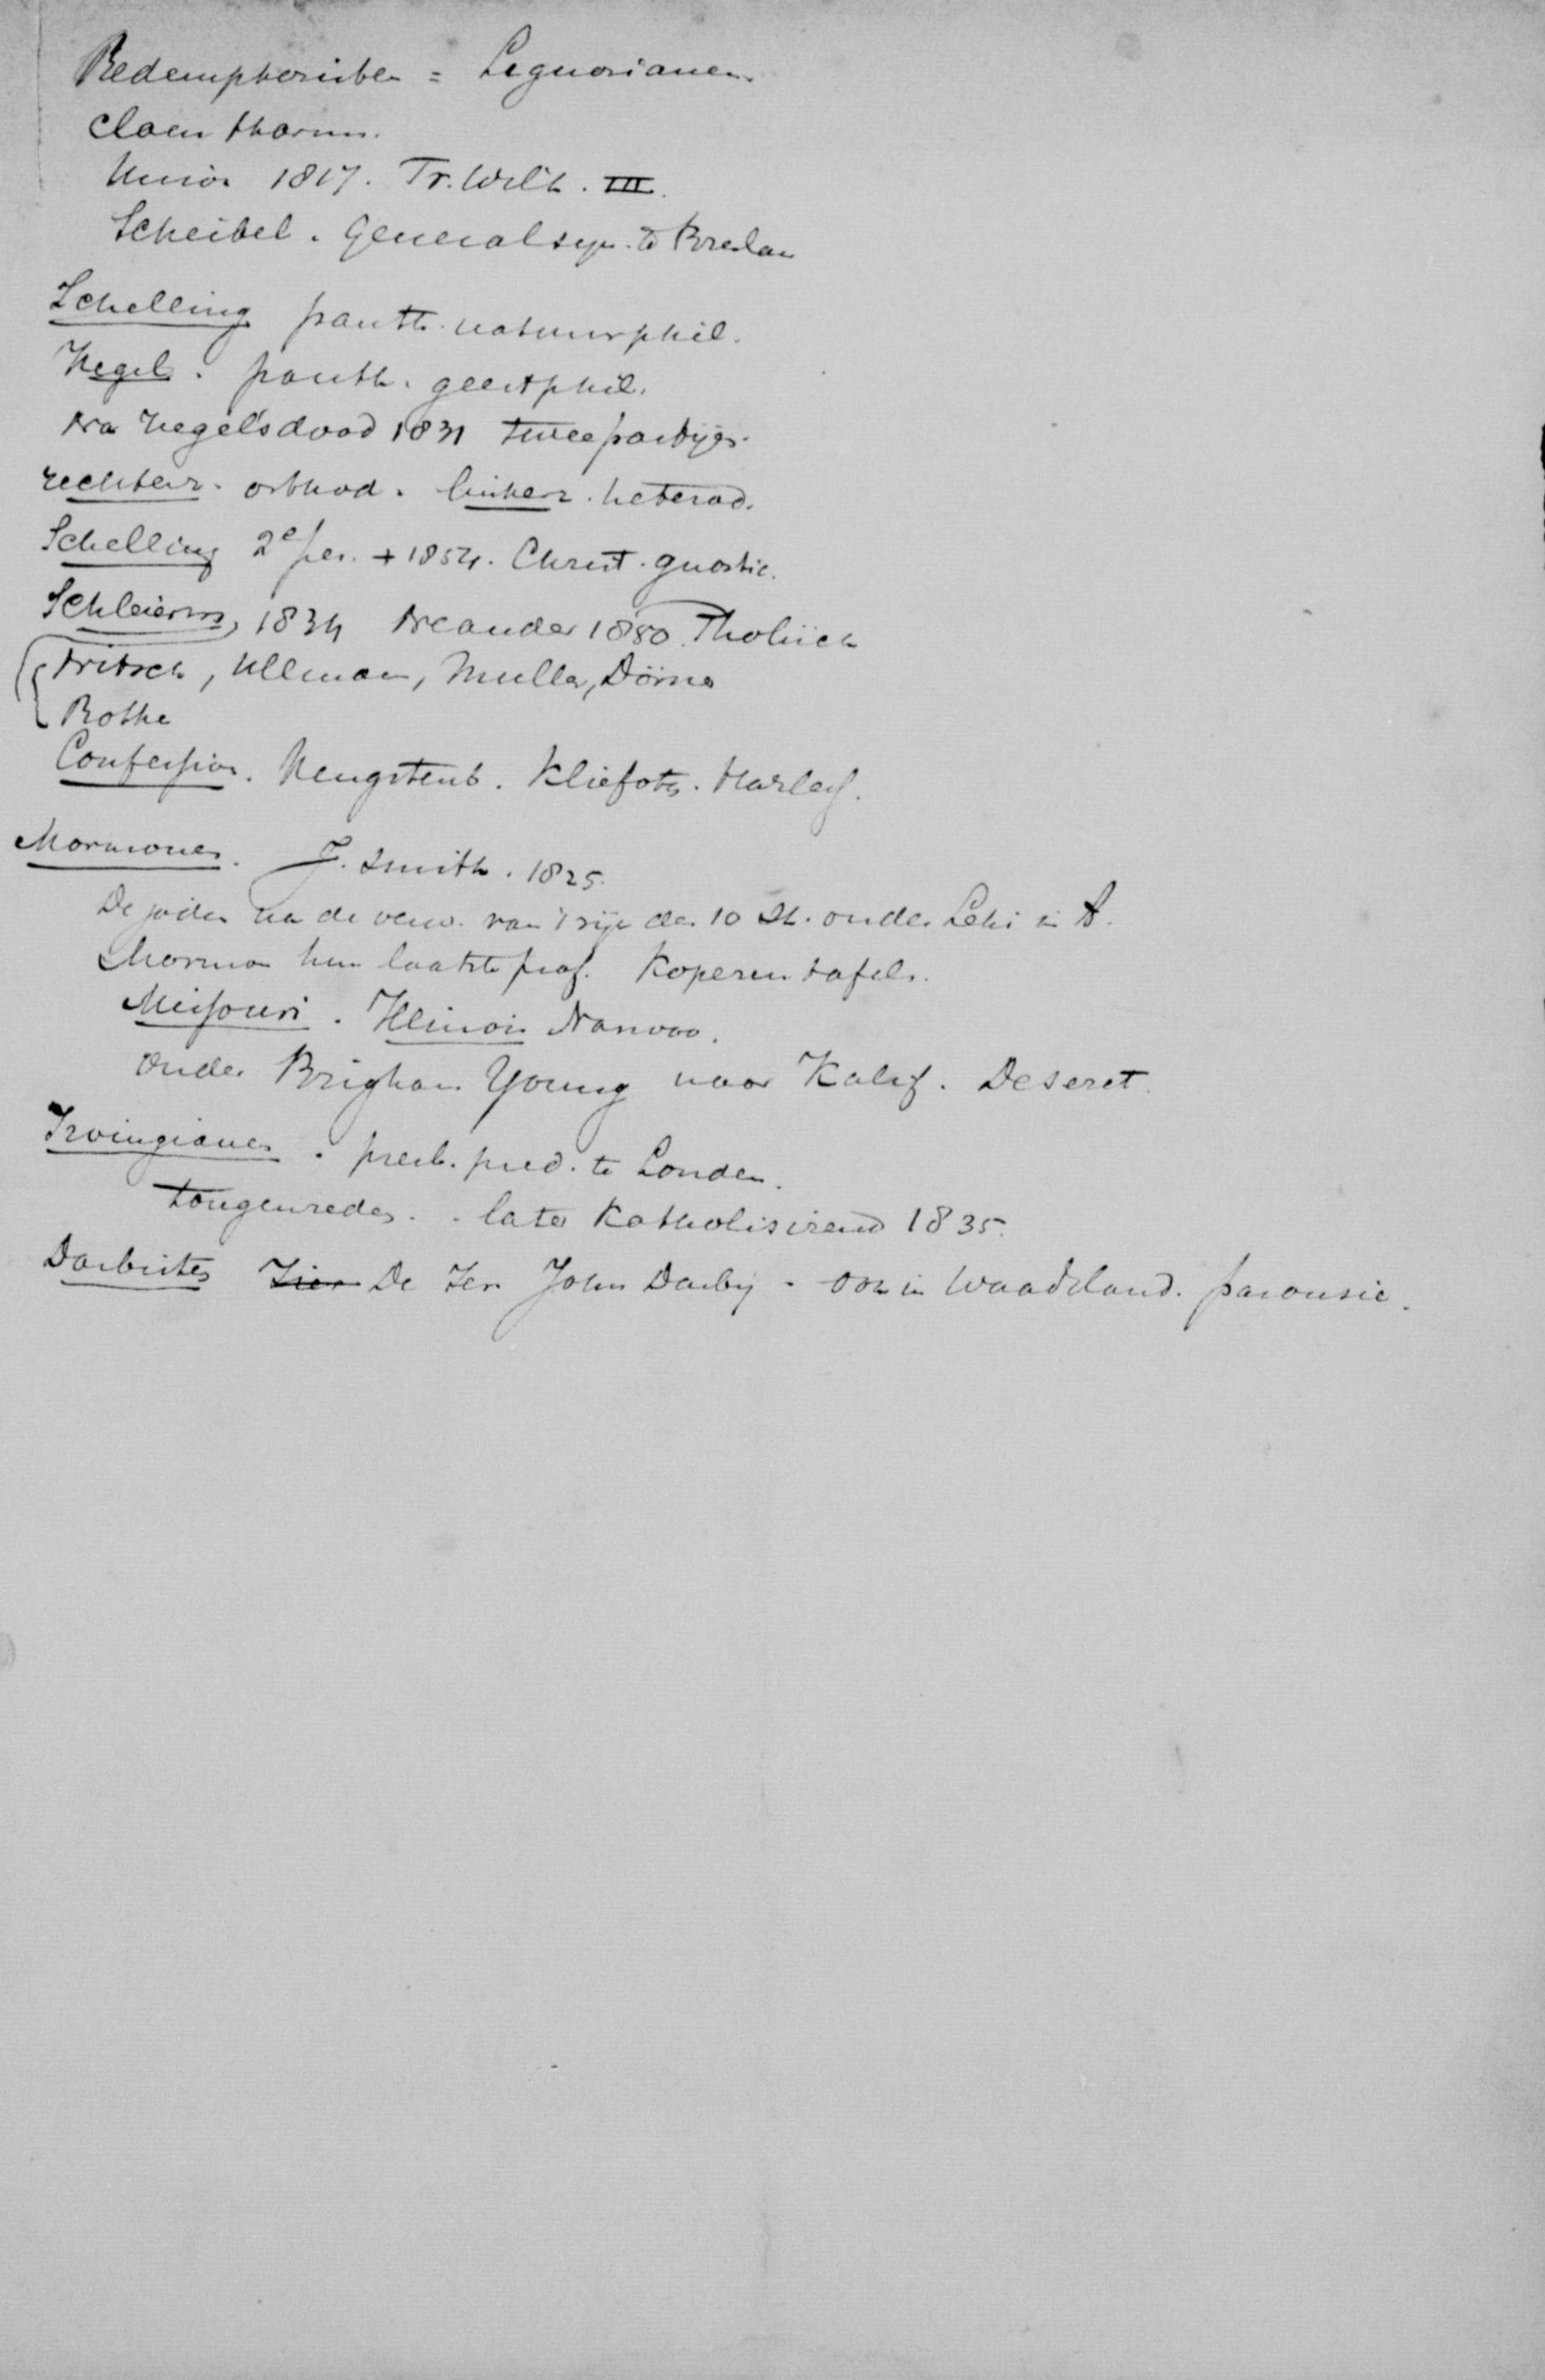 Redemptoristen = Liguorianen.
Claus Harms.
Union 1817. Fr. Wilh. III.
Scheibel. Generalsyn. te Breslau
Schelling panth. natuurphil.
Hegel. panth. geestphil.
Na Hegel's dood 1831 twee partijen.
rechterz. orthod. linkerz. heterod.
Schelling 2e per. + 1854. Christ. gnostic.
Schleierm, 1834 Neander 1850. Tholück
Nitzsch, Ullman, Muller, Dörner
Rothe
Confession. Hengstenb. Kliefoth. Harless.
Mormonen. J. Smith. 1825.
De joden na de verw. van 't rijk der 10 St. onder Lehi in A.
Mormon hun laatste prof. Koperen tafels.
Missouri. Illinois Nauvoo.
onder Brigham Young naar Kalif. Deseret.
Irvingianen. presb. pred. te Londen.
tongenreden. later Katholisirend 1835.
Darbisten De Ier John Darby. ook in Waadtland. parousie.